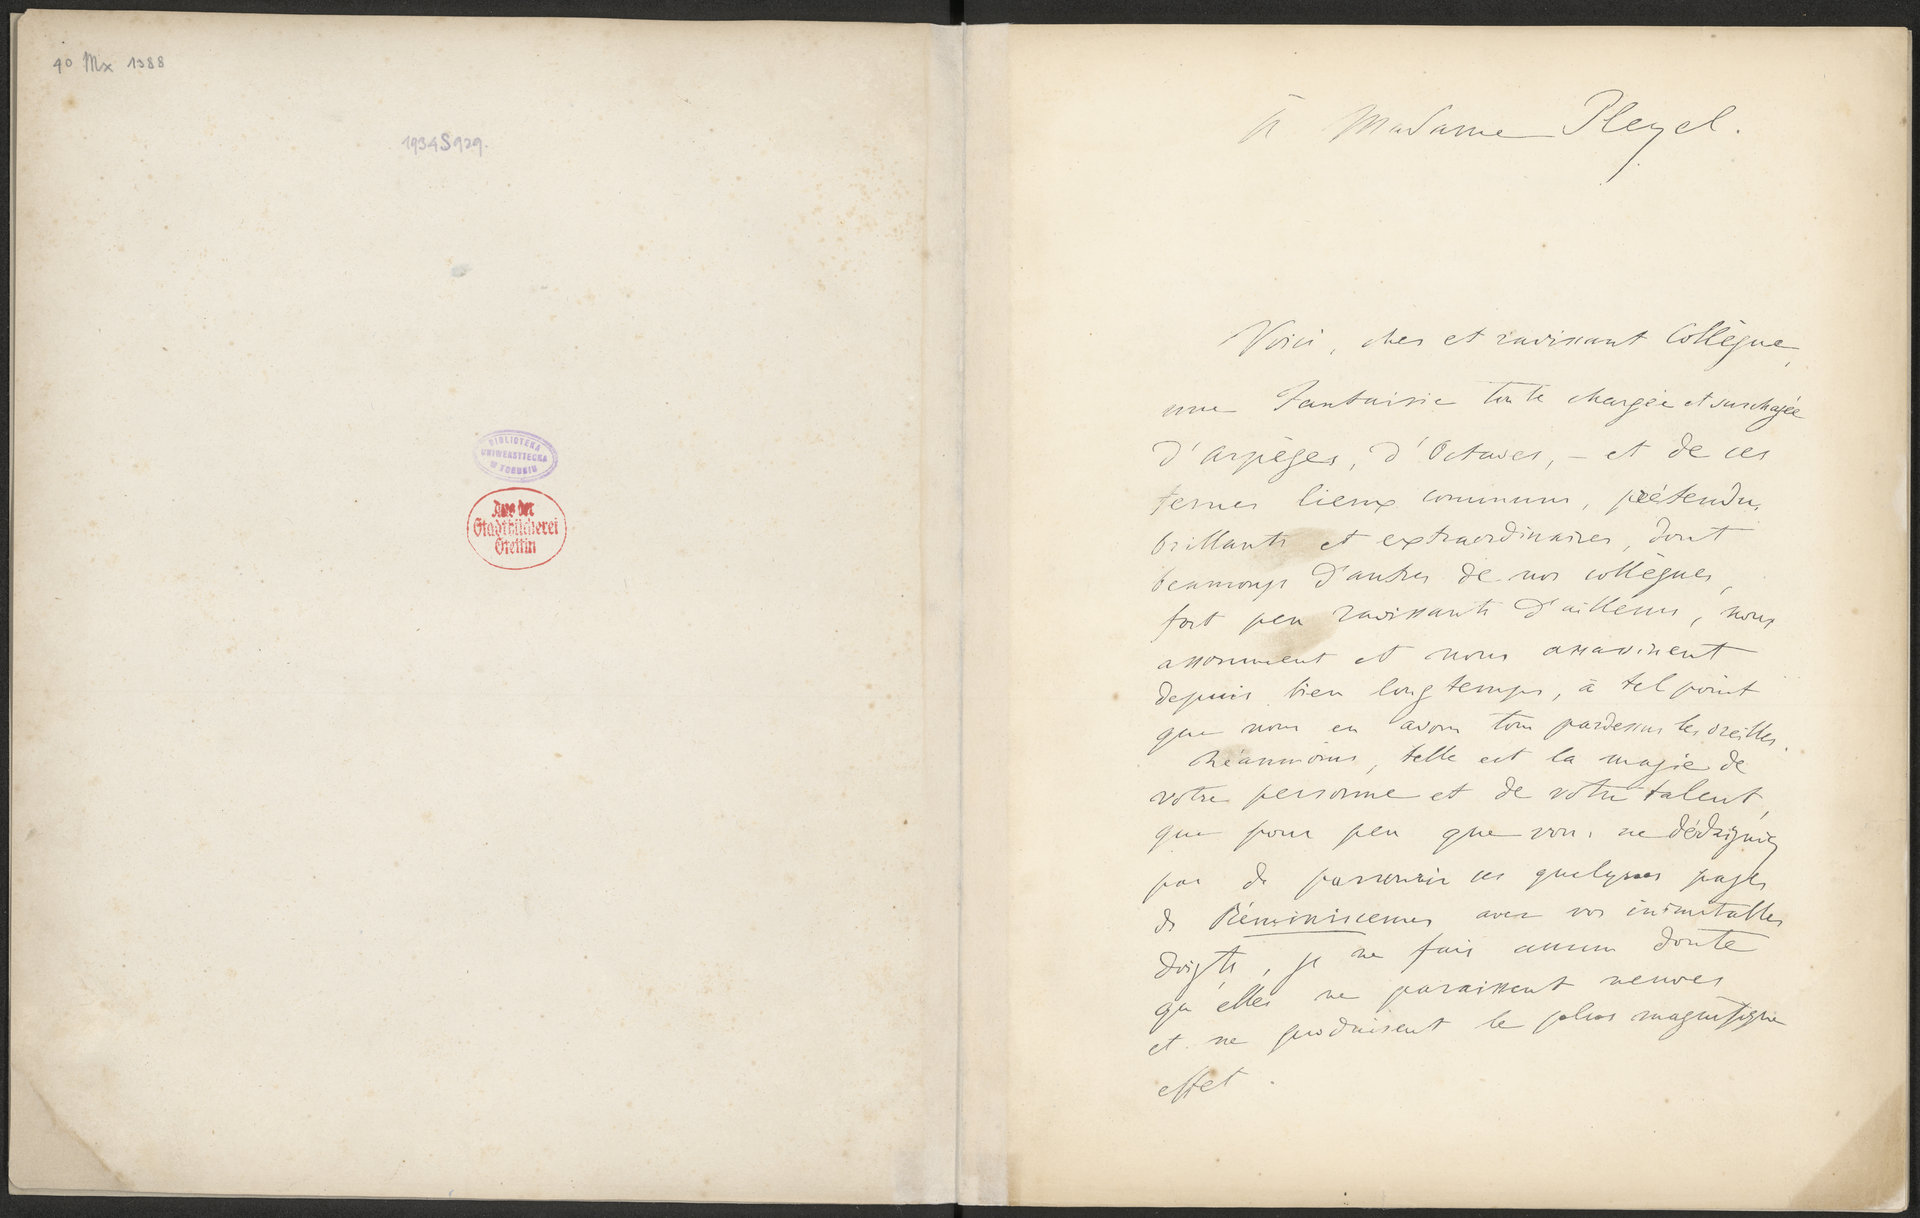 40 Mx 1988
1934S929.
BIBLIOTEKA
UNIWERSYTECKA
W TORUNIU
Aus der
Stadtbücherei
Stettin
A Madame Pleyel.
Voici, cher et ravissant Collègue,
une Fantaisie toute chargée et surchagée
d'arpèges, d'Octaves, – et de ces
ternes lieux communs, prétendus
brillants et extraordinaires, dont
beaucoup d'autres de nos collègues,
fort peu ravissants d'ailleurs, nous
assomment et nous assassinent
depuis bien longtemps, à tel point
que nous en avons tous pardessus les oreilles.
Néanmoins, telle est la magie de
votre personne et de votre talent,
que pour peu que vous ne dédaigniez
pas de parcourir ces quelques pages
de Réminiscences avec vos inimitables
doigts, je ne fais aucun doute
qu'elles ne paraissent neuves
et ne produisent le plus magnifique
effet.